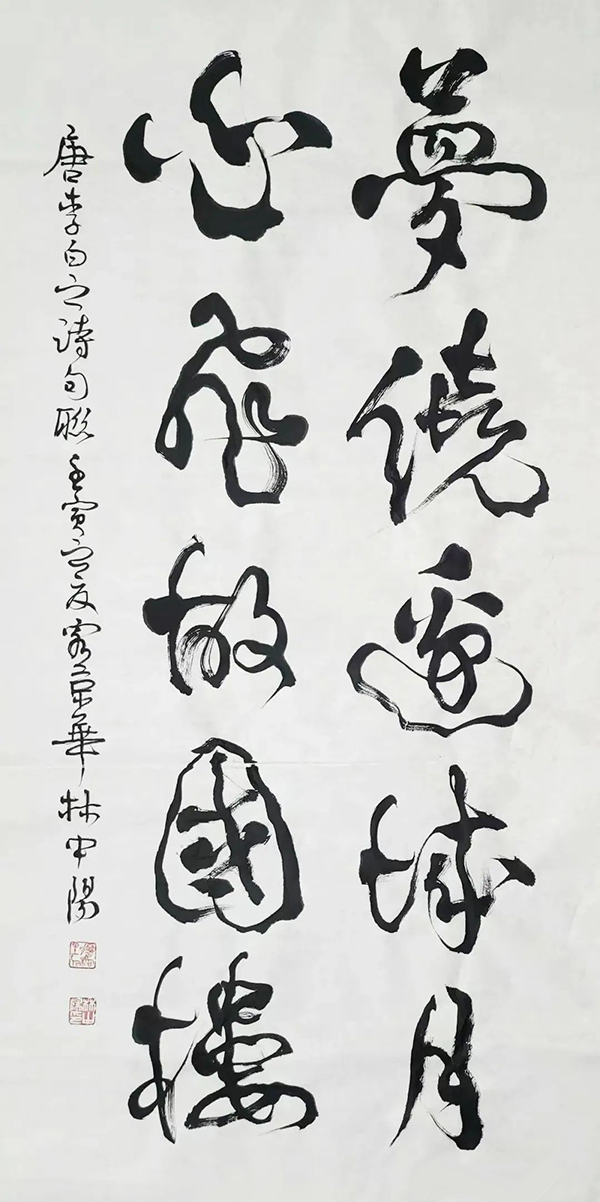 夢繞邊城月
心飛故國樓
唐李白之詩句聯壬寅之夏客京華林中陽